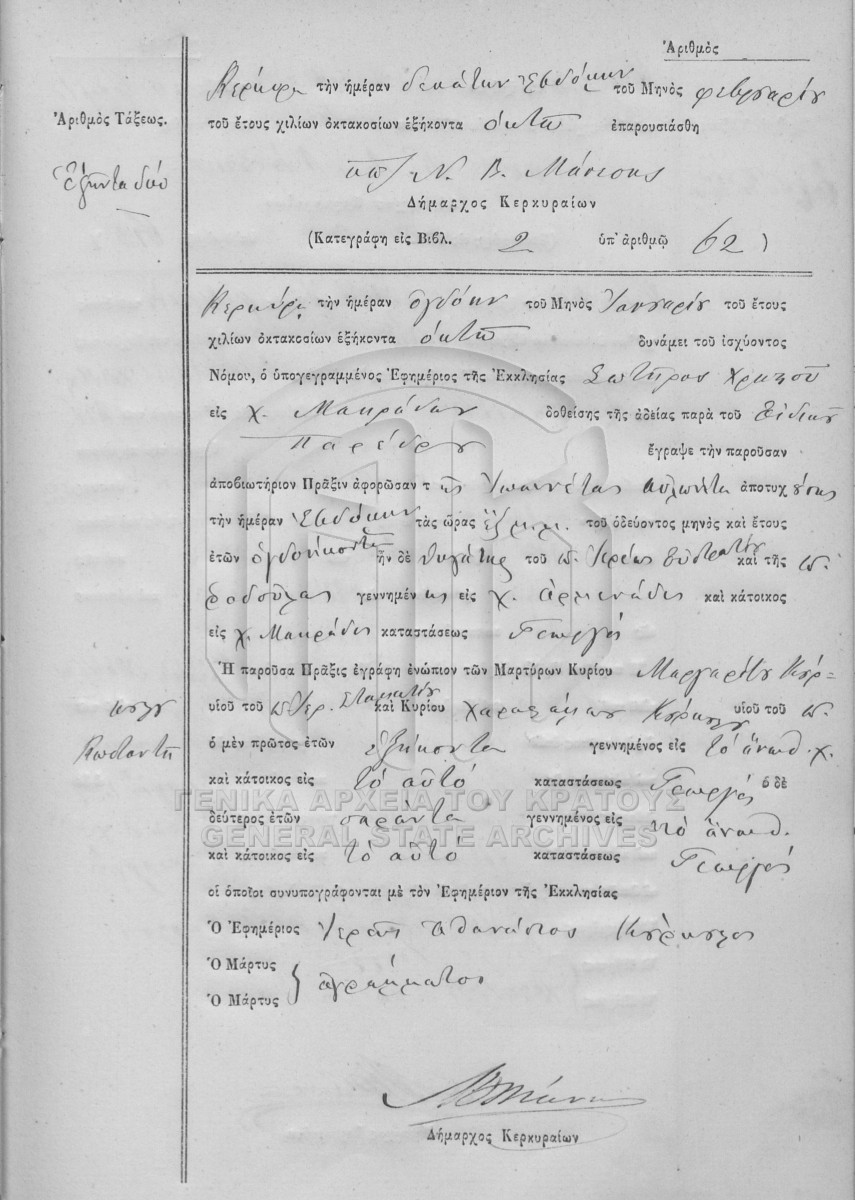 Ἀριθμὸς
Κέρκυρα τὴν ἡμέραν δεκάτην ἑβδόμην τοῦ Μηνὸς φεβρουαρίου
Ἀριθμὸς Τάξεως.
τοῦ ἔτους χιλίων ὀκτακοσίων ἑξήκοντα ὀκτὼ ἐπαρουσιάσθη
Ἑξῆντα δύο
Ν. Β. Μάνεσης
Δήμαρχος Κερκυραίων
(Κατεγράφη εἰς Βιβλ. 2 ὑπ' ἀριθμῷ 62)
Κέρκυρα τὴν ἡμέραν ὀγδόην τοῦ Μηνὸς Ἰανουαρίου τοῦ ἔτους
χιλίων ὀκτακοσίων ἑξήκοντα ὀκτὼ δυνάμει τοῦ ἰσχύοντος
Νόμου, ὁ ὑπογεγραμμένος Ἐφημέριος τῆς Ἐκκλησίας Σωτῆρος Χριστοῦ
εἰς χ. Μακράδων δοθείσης τῆς ἀδείας παρὰ τοῦ εἰδικοῦ
Παρέδρου ἔγραψε τὴν παροῦσαν
ἀποβιωτήριον Πρᾶξιν ἀφορῶσαν τῆς αὐλωνίτα ἀποτυχούσης
τὴν ἡμέραν ἑβδόμην τὰς ὥρας ἓξ μ.μ. τοῦ ὁδεύοντος μηνὸς καὶ ἔτους
ἐτῶν ὀγδοήκοντα ἦν δὲ θυγάτηρ τοῦ π. Ἱερέως Εὐστρατίου καὶ τῆς π.
ῥοδούλας γεννημένης εἰς χ. ἀρμενάδες καὶ κάτοικος
εἰς χ. Μακράδες καταστάσεως Γεωργός
Ἡ παροῦσα Πρᾶξις ἐγράφη ἐνώπιον τῶν Μαρτύρων Κυρίου Μαργαρίτου Κούρ-
κουλου υἱοῦ τοῦ π. Ἱερ. Σταματίου καὶ Κυρίου Χαραλάμπου Κούρκουλου υἱοῦ τοῦ π.
Κωσταντῆ ὁ μὲν πρῶτος ἐτῶν ἑξήκοντα γεννημένος εἰς τὸ ἄνωθ. χ.
καὶ κάτοικος εἰς τὸ αὐτό καταστάσεως Γεωργός ὁ δὲ
δεύτερος ἐτῶν σαράντα γεννημένος εἰς τὸ ἄνωθ.
καὶ κάτοικος εἰς τὸ αὐτό καταστάσεως Γεωργός
οἱ ὁποῖοι συνυπογράφονται μὲ τὸν Ἐφημέριον τῆς Ἐκκλησίας
Ὁ Ἐφημέριος Ἱερεὺς Ἀθανάσιος Κούρκουλος
Ὁ Μάρτυς
Ὁ Μάρτυς } ἀγράμματος
Δήμαρχος Κερκυραίων
ΓΕΝΙΚΑ ΑΡΧΕΙΑ ΤΟΥ ΚΡΑΤΟΥΣ
GENERAL STATE ARCHIVES